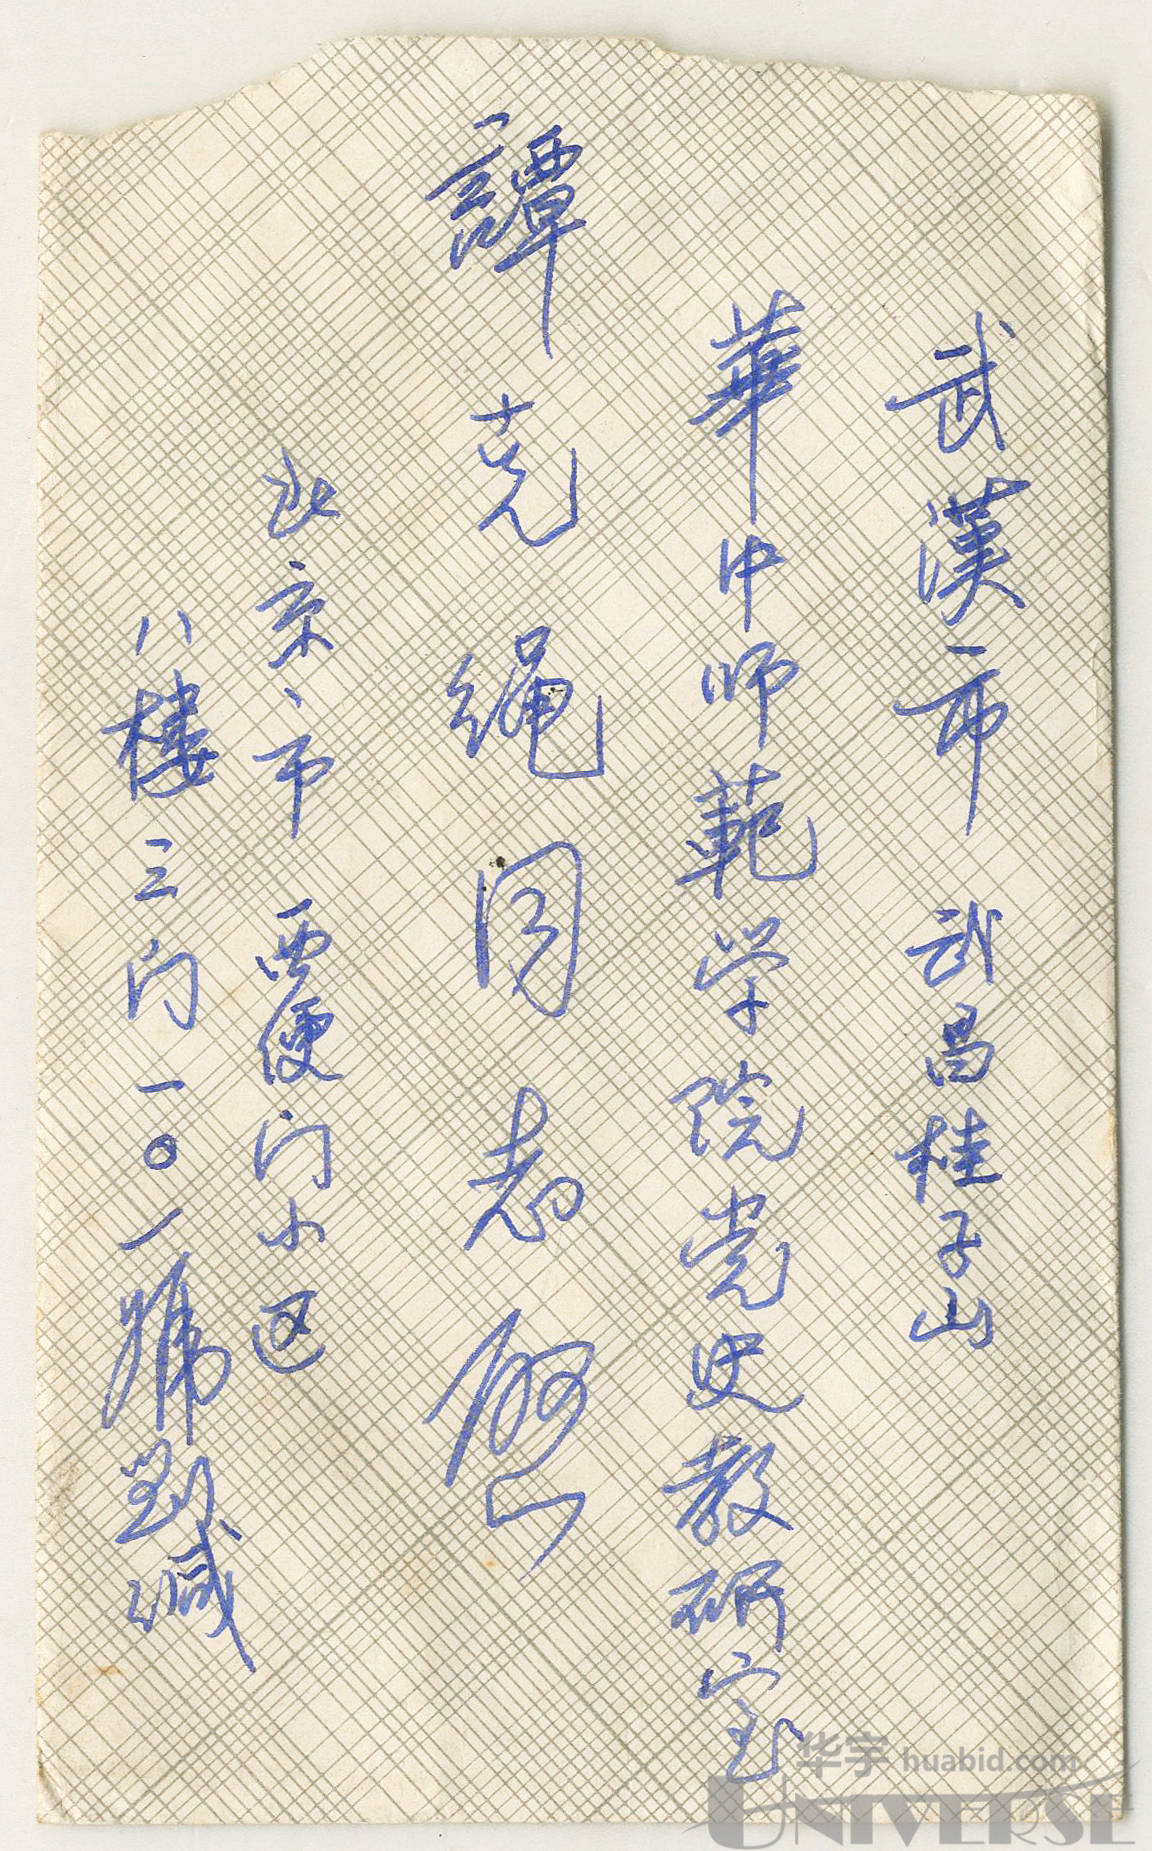 武漢市 武昌桂子山
華中师範学院党史教研室
譚克绳同志啟
北京市 西便门小区
八樓三门一〇一號劉缄
华宇 huabid.com
UNIVERSE